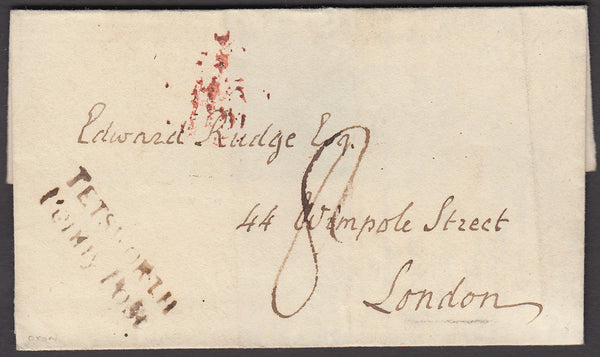 Edward Rudge Esq.
8
44 Wimpole Street
London
TETSWORTH
Penny Post
OXON